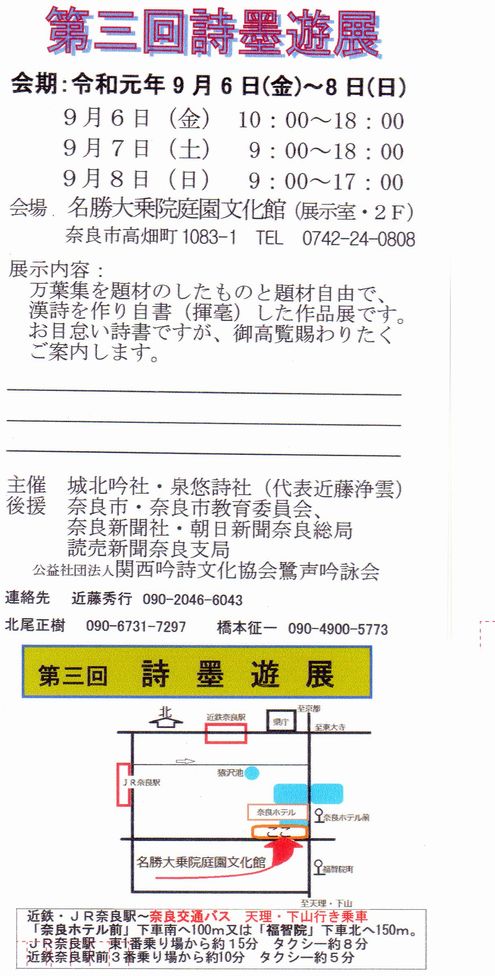 第三回詩墨遊展
会期：令和元年9月6日(金)～8日(日)
9月6日（金） 10：00～18：00
9月7日（土） 9：00～18：00
9月8日（日） 9：00～17：00
会場．名勝大乗院庭園文化館（展示室・2F）
奈良市高畑町1083-1 TEL 0742-24-0808
展示内容：
万葉集を題材のしたものと題材自由で、
漢詩を作り自書（揮毫）した作品展です。
お目怠い詩書ですが、御高覧賜わりたく
ご案内します。
主催 城北吟社・泉悠詩社（代表近藤浄雲）
後援 奈良市・奈良市教育委員会、
奈良新聞社・朝日新聞奈良総局
読売新聞奈良支局
公益社団法人関西吟詩文化協会鷺声吟詠会
連絡先 近藤秀行 090-2046-6043
北尾正樹 090-6731-7297 橋本征一 090-4900-5773
第三回 詩墨遊展
至京都
北
近鉄奈良駅
県庁
至東大寺
JR奈良駅
猿沢池
奈良ホテル
奈良ホテル前
ここ
名勝大乗院庭園文化館
福智院町
至天理・下山
近鉄・JR奈良駅～奈良交通バス 天理・下山行き乗車
「奈良ホテル前」下車南へ100m又は「福智院」下車北へ150m。
JR奈良駅 東1番乗り場から約15分 タクシー約8分
近鉄奈良駅前3番乗り場から約10分 タクシー約5分